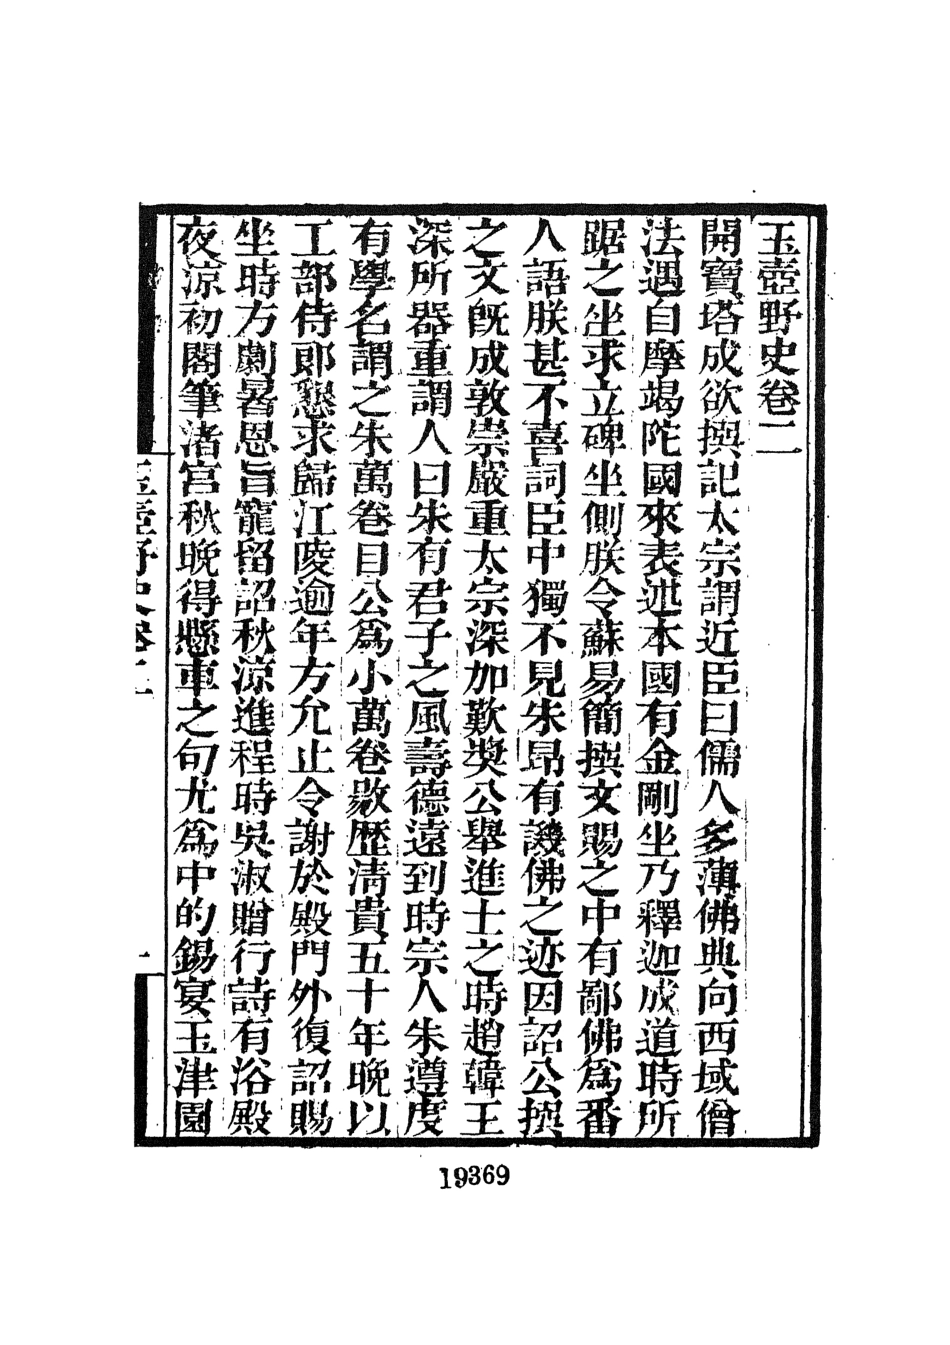 玉壺野史卷二
開寶塔成欲撰記太宗謂近臣曰儒人多薄佛典向西域僧
法遇自摩竭陀國來表述本國有金剛坐乃釋迦成道時所
踞之坐求立碑坐側朕令蘇易簡撰文賜之中有鄙佛爲番
人語朕甚不喜詞臣中獨不見朱昂有譏佛之迹因詔公撰
之文旣成敦崇嚴重太宗深加歎奬公舉進士之時趙韓王
深所器重謂人曰朱有君子之風壽德遠到時宗人朱遵度
有學名謂之朱萬卷目公爲小萬卷敭歷淸貴五十年晚以
工部侍郎懇求歸江陵逾年方允止令謝於殿門外復詔賜
坐時方劇暑恩旨寵留詔秋涼進程時吳淑贈行詩有浴殿
夜涼初閣筆渚宮秋晚得懸車之句尤爲中的錫宴玉津園
玉壺野史卷二
一
19369